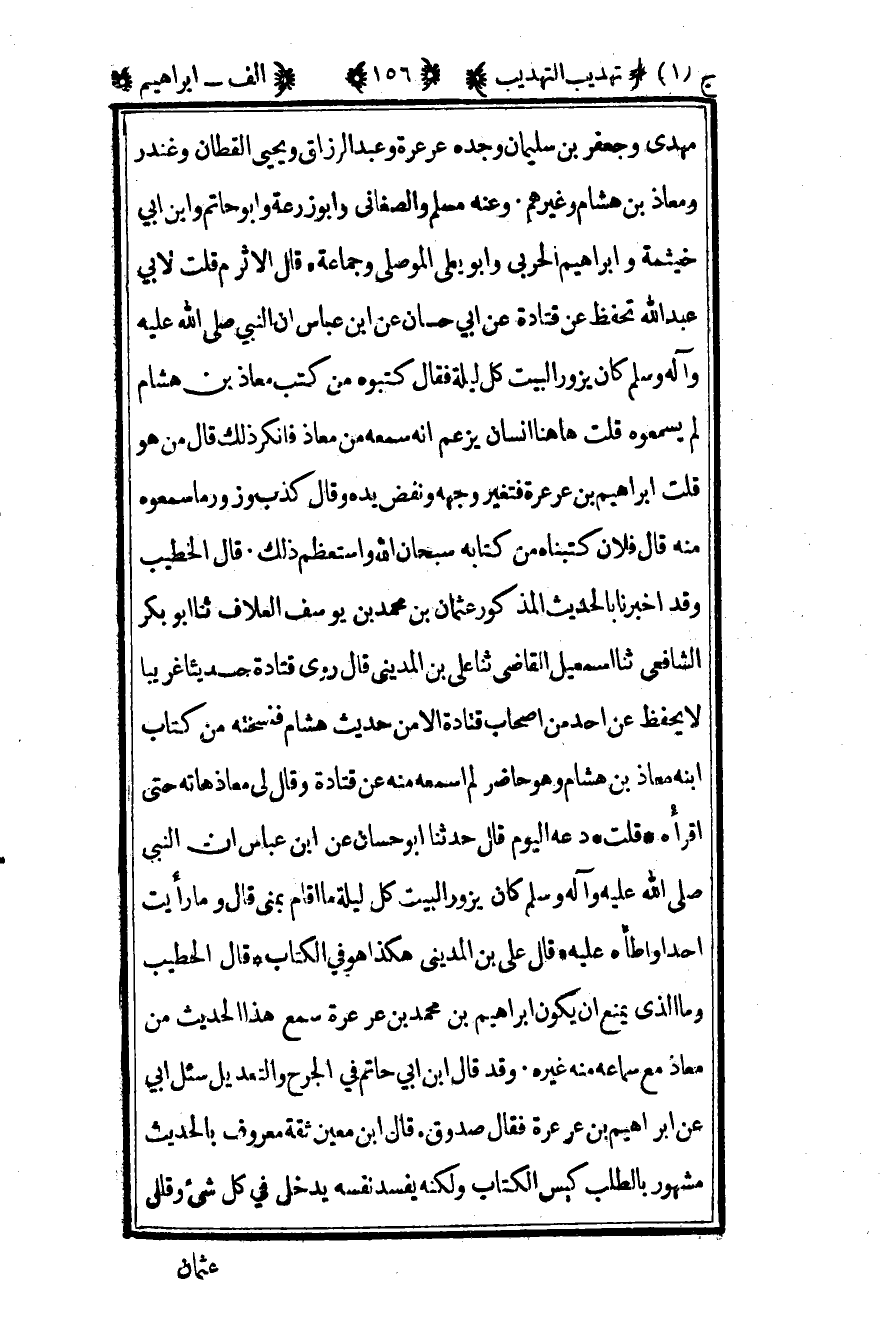 ج (١) تهذيب التهذيب ١٥٦ الف ــ ابراهيم
مهدى وجعفر بن سليمان وجده عرعرة وعبدالرزاق ويحيى القطان وغندر
ومعاذ بن هشام وغيرهم · وعنه مسلم والصغانى وابوزرعة وابوحاتم وابن ابي
خيثمة و ابراهيم الحربى وابو يعلى الموصلى وجماعة • قال الاثرم قلت لابي
عبدالله تحفظ عن قتادة عن ابي حسان عن ابن عباس ان النبي صلى الله عليه
وآله وسلم كان يزور البيت كل ليلة فقال كتبوه من كتب معاذ بن هشام
لم يسمعوه قلت هاهنا انسان يزعم انه سمعه من معاذ فانكر ذلك قال من هو
قلت ابراهيم بن عرعرة فتغير وجهه ونفض يده وقال كذب وزور ما سمعوه
منه قال فلان كتبناه من كتابه سبحان الله واستعظم ذلك · قال الخطيب
وقد اخبرنا بالحديث المذكور عثمان بن محمد بن يوسف العلاف ثنا ابو بكر
الشافعى ثنا اسمعيل القاضى ثنا على بن المدينى قال روى قتادة حديثا غريبا
لا يحفظ عن احد من اصحاب قتادة الا من حديث هشام فنسخته من كتاب
ابنه معاذ بن هشام وهو حاضر لم اسمعه منه عن قتادة وقال لى معاذ هاته حتى
اقرأه • قلت • دعه اليوم قال حدثنا ابو حسان عن ابن عباس ان النبي
صلى الله عليه وآله وسلم كان يزور البيت كل ليلة ما اقام بمنى قال و ما رأيت
احدا واطأه عليه • قال على بن المدينى هكذا هو في الكتاب • قال الخطيب
وما الذى يمنع ان يكون ابراهيم بن محمد بن عرعرة سمع هذا الحديث من
معاذ مع سماعه منه غيره · وقد قال ابن ابي حاتم في الجرح والتعديل سئل ابي
عن ابراهيم بن عرعرة فقال صدوق • قال ابن معين ثقة معروف بالحديث
مشهور بالطلب كيس الكتاب ولكنه يفسد نفسه يدخل في كل شئ وقال لى
عثمان